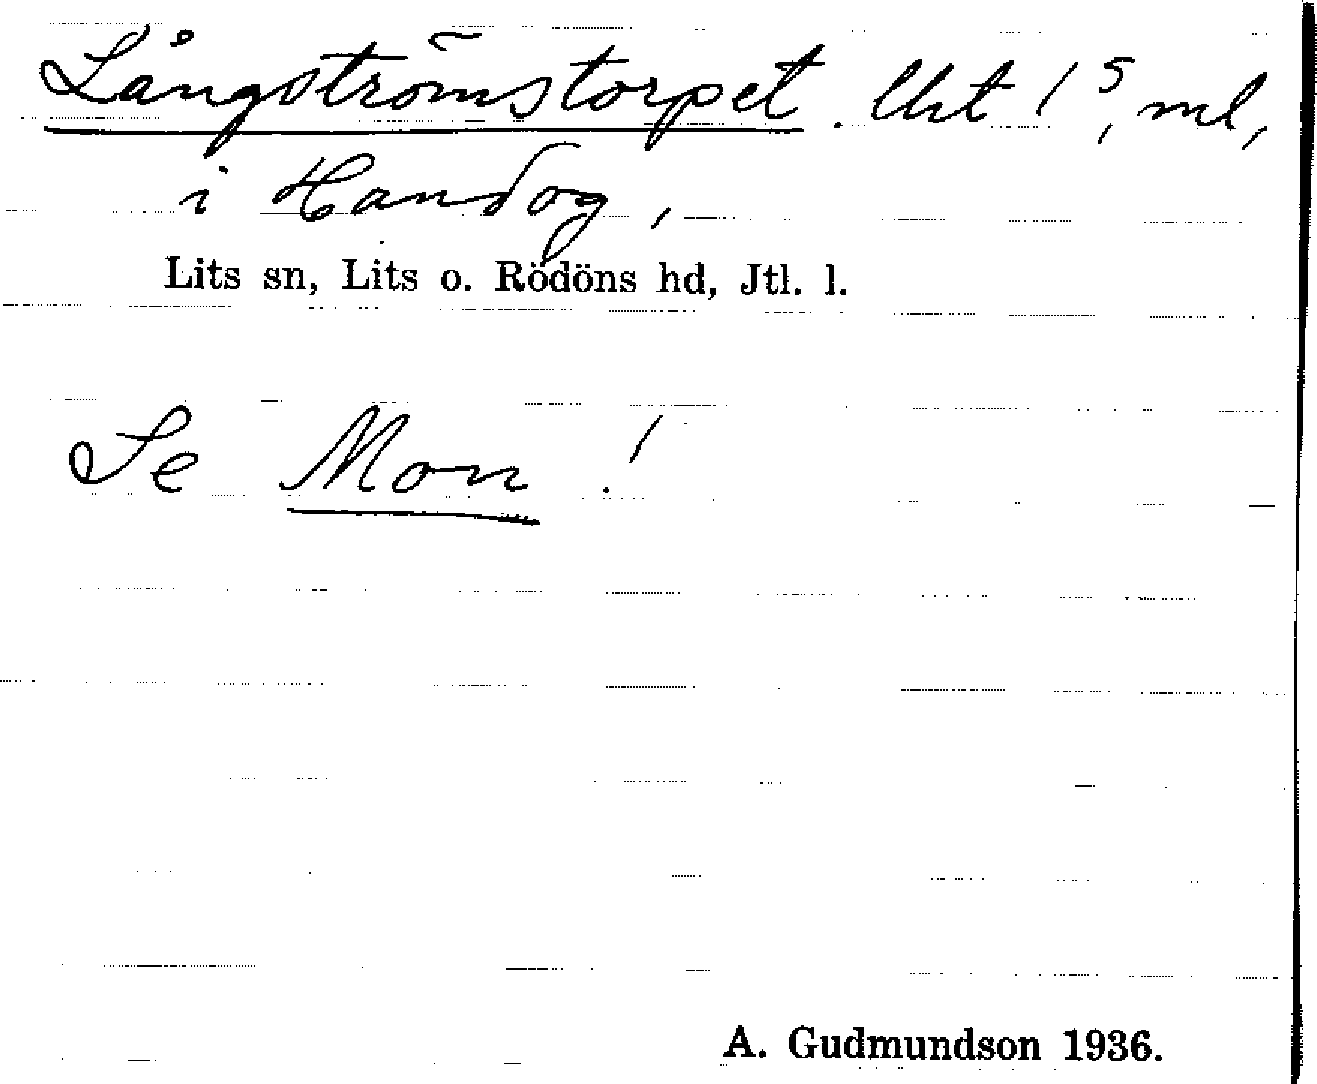 Långströmstorpet. lht 1⁵, ml,
i Handog,
Lits sn, Lits o. Rödöns hd, Jtl. l.
Se Mon !
A. Gudmundson 1936.